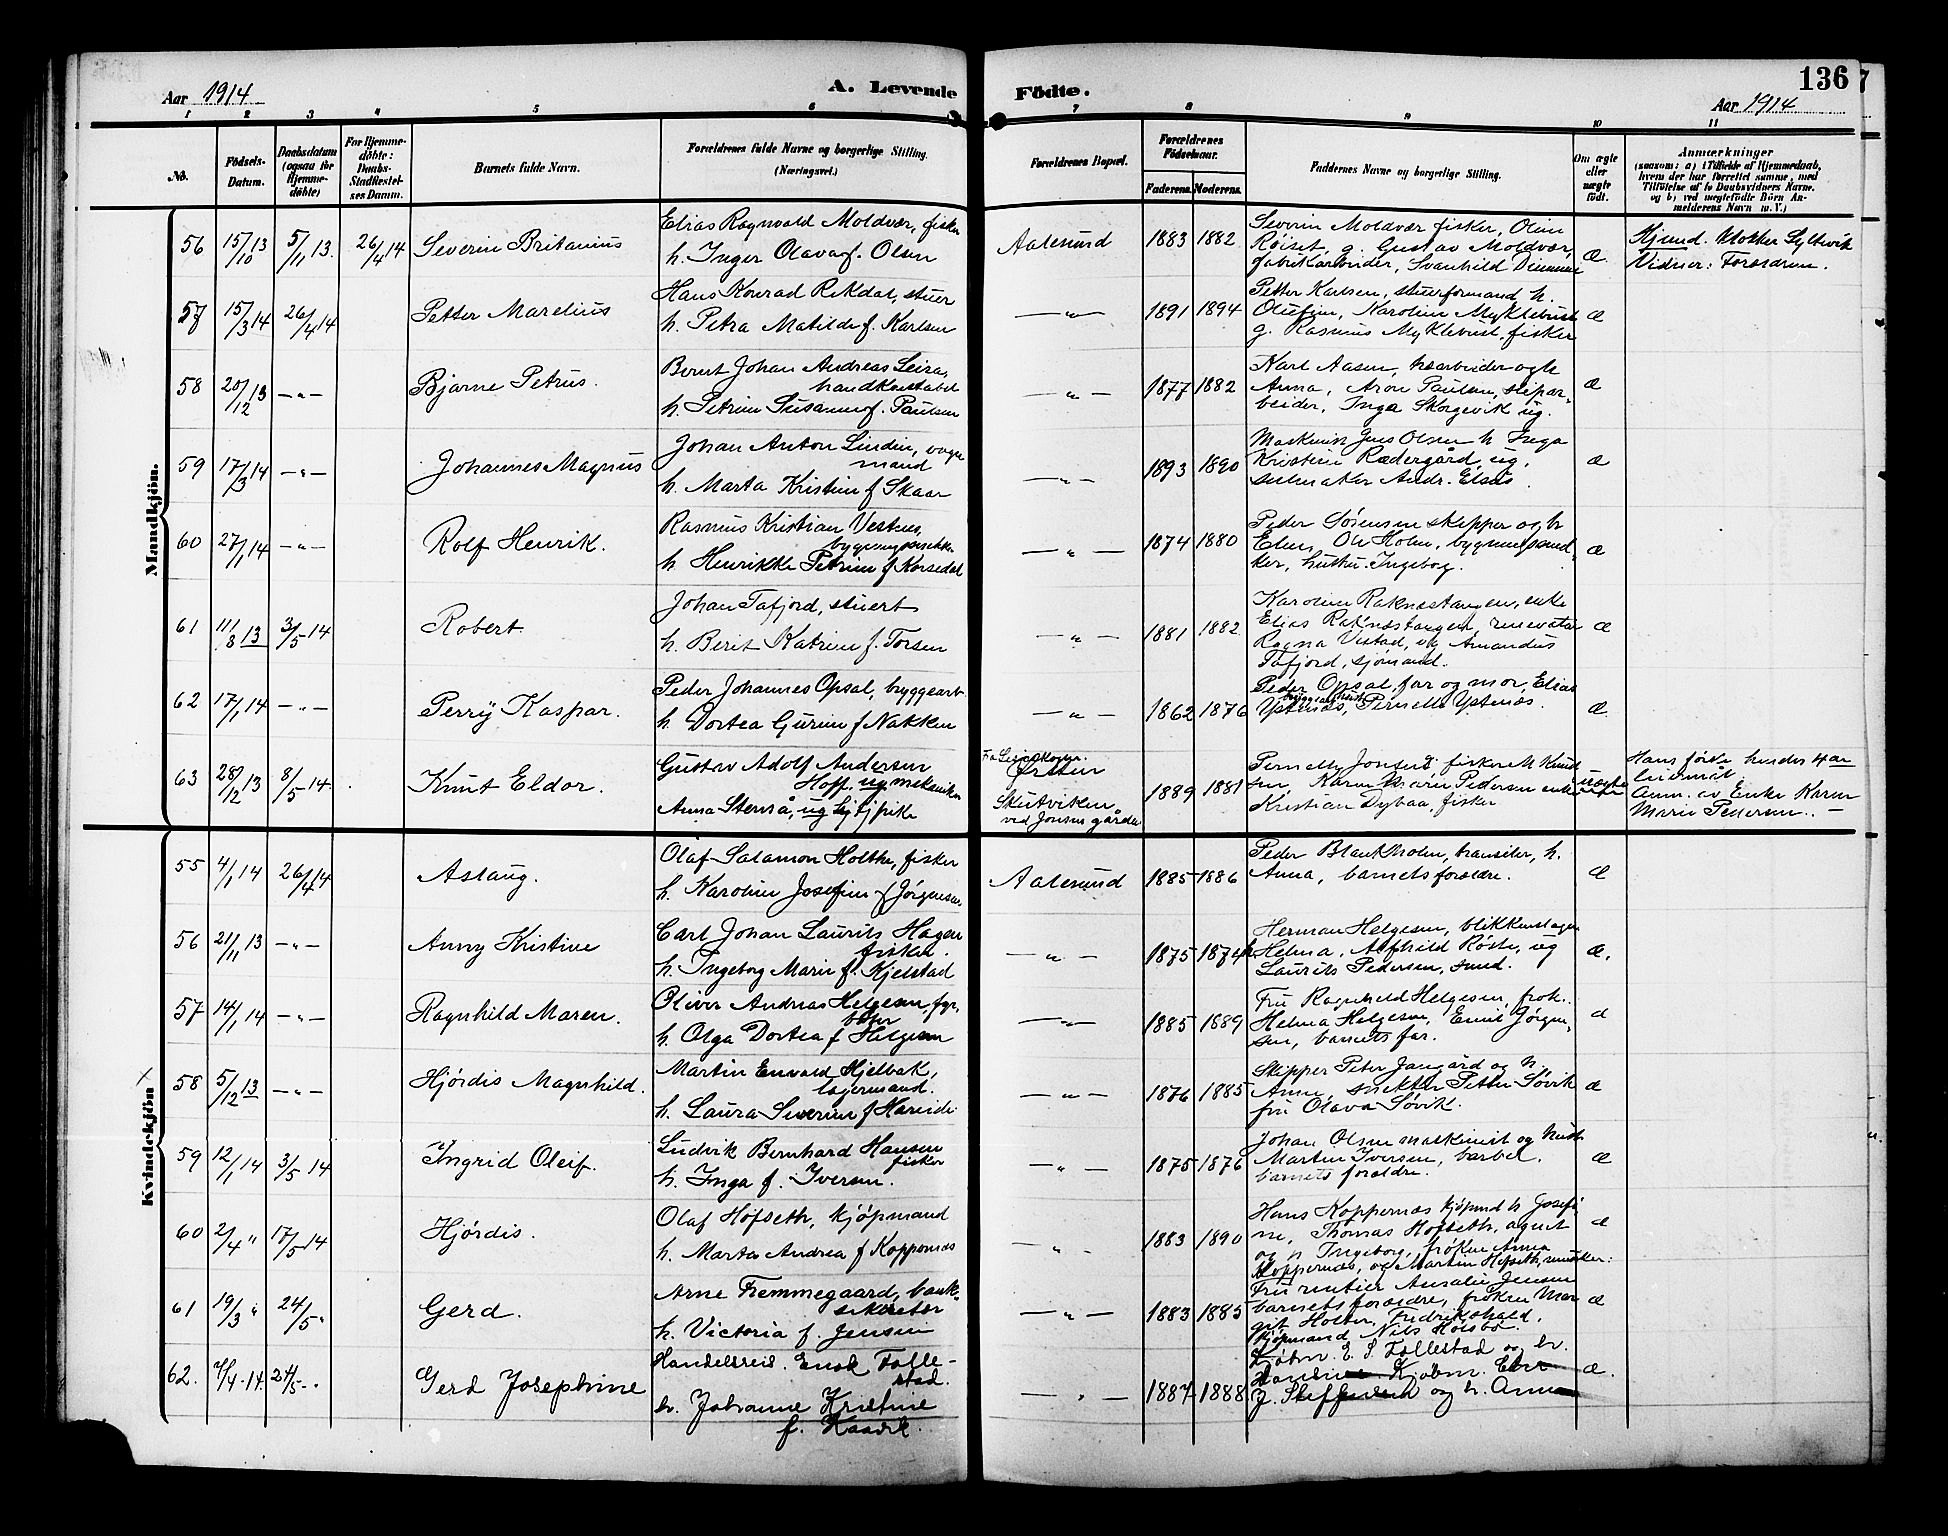 136
Aar 1914
A. Levende
Födte.
Aar 1914
1 2 3 4 5 6 7 8 9 10 11
No.
Födsels-Datum.
Daabsdatum (ogsaa for Hjemme-döbte)
For Hjemme-döbte: Daabs-Stadfæstel-ses Datum.
Barnets fulde Navn.
Forældrenes fulde Navne og borgerlige Stilling.
(Næringsvei.)
Forældrenes Bopæl.
Forældrenes Födselsaar.
Faderens. Moderens.
Faddernes Navne og borgerlige Stilling.
Om ægte eller uægte födt.
Anmærkninger
(saasom: a) i Tilfælde af Hjemmedaab,
hvem der har forrettet samme, med
Tilföielse af to Daabsvidners Navne.
og b) ved uægtefödte Börn An-
melderens Navn m. V.)
Mandkjön.
56 15/10 13 5/11 13. 26/4 14 Severin Britanius
Elias Ragnvald Moldvær, fisker
h. Inger Olava f. Olsen
Aalesund 1883 1882
Severin Moldvær fisker, Olin
Röiset, g. Gustav Moldvær,
fabrikarbeider, Svanhild
Æ
Hjemd. Klokker Syltevik
Vidner: Forældrene.
57 15/3 14 26/4 14 Petter Marelius
Hans Konrad Rekdal, stuer
h. Petra Matilde f. Karlsen
—"— 1891 1894
Petter Karlsen, stuerformand h.
Olufine, Karoline Myklebust
g. Rasmus Myklebust, fisker
Æ
58 20/12 13 —"— Bjarne Petrus.
Bernt Johan Andreas Leira,
h. Petrine Susanne f. Paulsen
—"— 1877 1882
Karl Aasen, arbeider og h
Anna, Aron Paulsen, slipar-
beider, Inga Skorgevik ug.
Æ
59 17/3 14 —"— Johannes Magnus
Johan Anton Lindin, vogn
mand
h. Marta Kristine f Skaar
—"— 1893 1890
Maskinist Jens Olsen h Inga
Kristine Rædergård, ug,
Andr. Elsås.
Æ
60 27/1 14 —"— Rolf Henrik.
Rasmus Kristian Vestnes,
bygningssnekker
h. Henrikke Petrine f Korsedal
—"— 1874 1880
Peder Sørensen skipper og h
Elen, Ole Holm, bygningssned-
ker, hustru Ingebog.
Æ
61 11/8 13 3/5 14 Robert.
Johan Tafjord, stuert
h. Berit Katrine f. Torsen
—"— 1881 1882
Karoline Raknæstangen, enke
Elias Raknæstangen, renovatør
Ragna Vestad, ug Amandus
Tafjord, sjömand.
Æ
62 17/1 14 —"— Perry Kaspar.
Peder Johannes Opsal, byggearb.
h. Dortea Gurine f Nakken
—"— 1862 1876
Peder Opsal, far og mor, Elias
Ystenæs, Pernelle Ystenæs.
Æ
63 28/12 13 8/5 14. Knut Eldor.
Gustav Adolf Andersen
Hoff. ug mekaniker
Anna Stenså, ug
Skutviken
ved Jonsengården
1889 1881
Pernelly Jonsen, fisker M Knud
sen, Karen Marie Pedersen enke
Kristian Dybaa, fisker
uægte
Hans förste hendes 4de
leiermål
Anm. av Enke Karen
Marie Pedersen.
Kvindekjön
55 4/1 14 26/4 14 Aslaug.
Olaf Salamon Holthe, fisker
h. Karoline Josefine f Jørgensen
Aalesund 1885 1886
Peder Blankholm, transiter, h.
Anna, barnets forældre.
Æ
56 21/11 13 —"— Anny Kristine
Carl Johan Laurits Hagen
fisker.
h. Ingeborg Marie f. Kjelstad
—"— 1875 1874
Herman Helgesen, blikkenslager
Helma, Alfhild Røste, ug
Laurits Pedersen, smed.
Æ.
57 14/1 14 —"— Ragnhild Maren.
Oliver Andreas Helgesen, fyr-
böter
h. Olga Dortea f Helgesen
—"— 1885 1889
Fru Ragnhild Helgesen, frøk.
Helma Helgesen, Emil Jørgen-
sen, barnets far.
Æ
58 5/12 13 —"— Hjørdis Magnhild.
Martin Envald Hjelbak,
lagermand.
h. Laura Severine f Hareide
—"— 1876 1885
Skipper Peter Jangård og h.
Anne, snekker Petter Søvik
fru Olava Søvik.
Æ
59 12/1 14 3/5 14 Ingrid Oleif.
Ludvik Bernhard Hansen
fisker
h. Inga f. Iversen.
—"— 1875 1876
Johan Olsen maskinist og hust.
Martin Iversen,
barnets forældre.
Æ
60 2/4 " 17/5 14 Hjørdis.
Olaf Hofseth, kjöpmand
h. Marta Andrea f Koppernæs
—"— 1883 1890
Hans Koppernæs kjöpmd h Josefi-
ne, Thomas Hofseth, agent
og h Ingeborg, fröken Anna
Koppernæs, og Martin Hofseth, musiker:
Æ
61 19/3 " 24/5 " Gerd.
Arne Fremmegaard, bank-
sekretær
h. Victoria f. Jensen
—"— 1883 1885
Fru rentier Amalie Jensen
barnets forældre, fröken Mar
git Holter, Fredrikshald,
kjöpmand Nils Holsbö.
Æ
62. 7/4-14. 24/5-" Gerd Josephine
Handelsreis. Enok Folle-
stad.
h. Johanne Kristine
f. Kaavik.
—"— 1887 1888
Kjøbm. E. S. Follestad og h.
Kjøbm.
J. Steffensen og h. Anna
Æ.